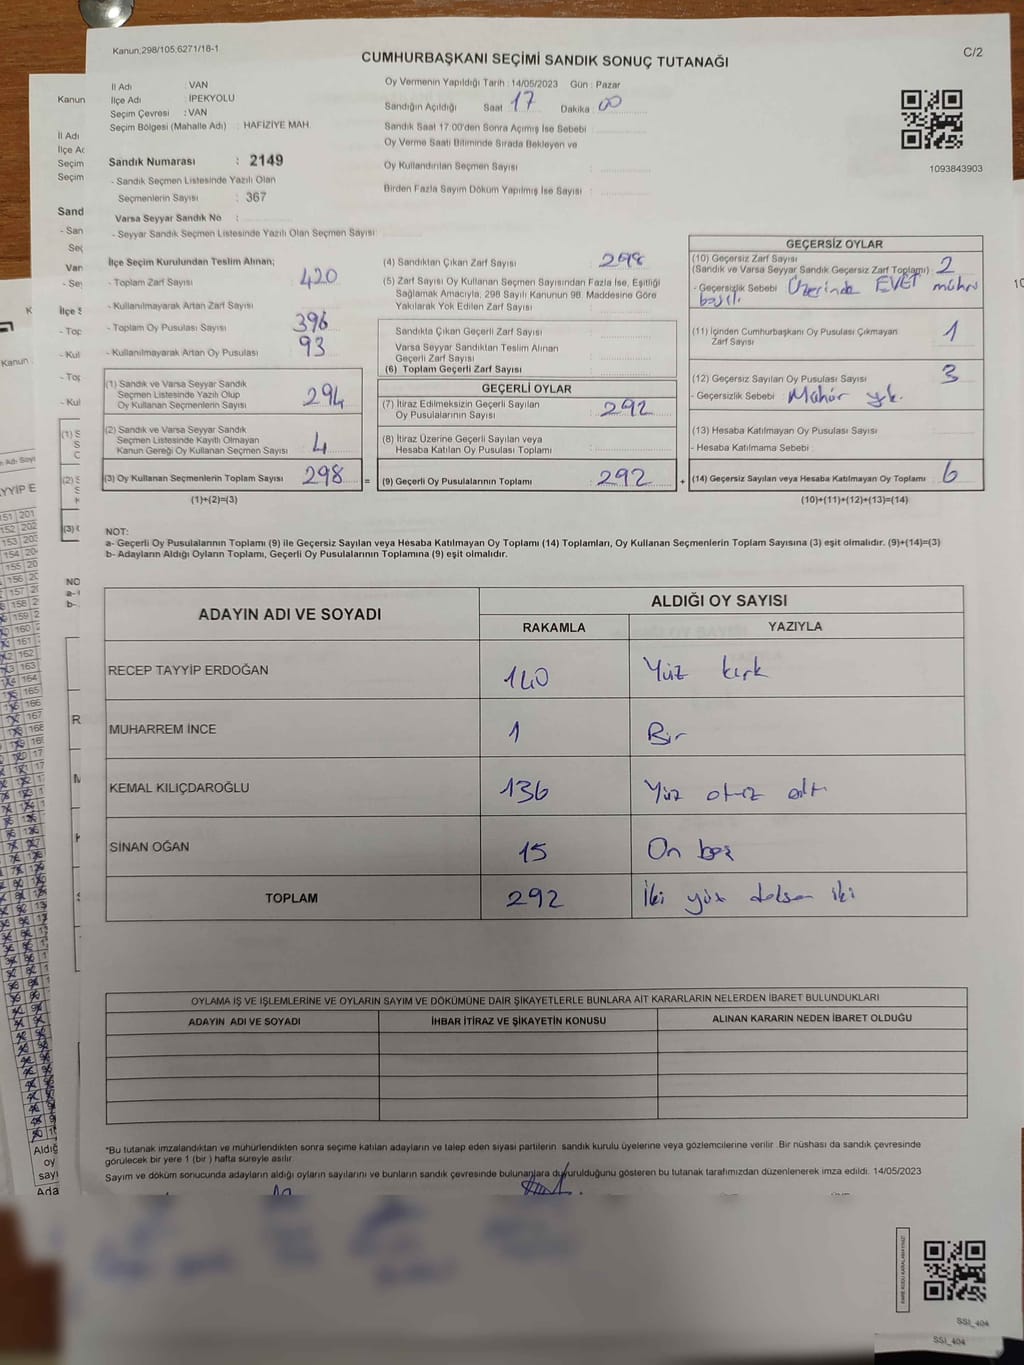 Kanun,298/105,6271/18-1
CUMHURBAŞKANI SEÇİMİ SANDIK SONUÇ TUTANAĞI
C/2
İl Adı : VAN
İlçe Adı : İPEKYOLU
Seçim Çevresi : VAN
Seçim Bölgesi (Mahalle Adı) : HAFİZİYE MAH.
Sandık Numarası : 2149
- Sandık Seçmen Listesinde Yazılı Olan
Seçmenlerin Sayısı : 367
Varsa Seyyar Sandık No :
- Seyyar Sandık Seçmen Listesinde Yazılı Olan Seçmen Sayısı:
Oy Vermenin Yapıldığı Tarih : 14/05/2023 Gün : Pazar
Sandığın Açıldığı Saat 17 Dakika 00
Sandık Saat 17:00'den Sonra Açımış İse Sebebi
Oy Verme Saati Bitiminde Sırada Bekleyen ve
Oy Kullandırılan Seçmen Sayısı
Birden Fazla Sayım Döküm Yapılmış İse Sayısı
1093843903
İlçe Seçim Kurulundan Teslim Alınan;
- Toplam Zarf Sayısı : 420
- Kullanılmayarak Artan Zarf Sayısı :
- Toplam Oy Pusulası Sayısı : 396
- Kullanılmayarak Artan Oy Pusulası : 93
(1) Sandık ve Varsa Seyyar Sandık
Seçmen Listesinde Yazılı Olup
Oy Kullanan Seçmenlerin Sayısı : 294
(2) Sandık ve Varsa Seyyar Sandık
Seçmen Listesinde Kayıtlı Olmayan
Kanun Gereği Oy Kullanan Seçmen Sayısı : 4
(3) Oy Kullanan Seçmenlerin Toplam Sayısı : 298 =
(1)+(2)=(3)
(4) Sandıktan Çıkan Zarf Sayısı : 298
(5) Zarf Sayısı Oy Kullanan Seçmen Sayısından Fazla İse, Eşitliği
Sağlamak Amacıyla, 298 Sayılı Kanunun 98. Maddesine Göre
Yakılarak Yok Edilen Zarf Sayısı :
Sandıkta Çıkan Geçerli Zarf Sayısı :
Varsa Seyyar Sandıktan Teslim Alınan
Geçerli Zarf Sayısı :
(6) Toplam Geçerli Zarf Sayısı :
GEÇERLİ OYLAR
(7) İtiraz Edilmeksizin Geçerli Sayılan
Oy Pusulalarının Sayısı : 292
(8) İtiraz Üzerine Geçerli Sayılan veya
Hesaba Katılan Oy Pusulası Toplamı :
(9) Geçerli Oy Pusulalarının Toplamı : 292 +
GEÇERSİZ OYLAR
(10) Geçersiz Zarf Sayısı
(Sandık ve Varsa Seyyar Sandık Geçersiz Zarf Toplamı) 2
- Geçersizlik Sebebi : Üzerinde EVET mührü
basılı.
(11) İçinden Cumhurbaşkanı Oy Pusulası Çıkmayan
Zarf Sayısı : 1
(12) Geçersiz Sayılan Oy Pusulası Sayısı : 3
- Geçersizlik Sebebi : Mühür yk.
(13) Hesaba Katılmayan Oy Pusulası Sayısı :
- Hesaba Katılmama Sebebi :
(14) Geçersiz Sayılan veya Hesaba Katılmayan Oy Toplamı : 6
(10)+(11)+(12)+(13)=(14)
NOT:
a- Geçerli Oy Pusulalarının Toplamı (9) ile Geçersiz Sayılan veya Hesaba Katılmayan Oy Toplamı (14) Toplamları, Oy Kullanan Seçmenlerin Toplam Sayısına (3) eşit olmalıdır. (9)+(14)=(3)
b- Adayların Aldığı Oyların Toplamı, Geçerli Oy Pusulalarının Toplamına (9) eşit olmalıdır.
ADAYIN ADI VE SOYADI
ALDIĞI OY SAYISI
RAKAMLA YAZIYLA
RECEP TAYYİP ERDOĞAN 140 Yüz kırk
MUHARREM İNCE 1 Bir
KEMAL KILIÇDAROĞLU 136 Yüz otuz altı
SİNAN OĞAN 15 On beş
TOPLAM 292 İki yüz doksan iki
OYLAMA İŞ VE İŞLEMLERİNE VE OYLARIN SAYIM VE DÖKÜMÜNE DAİR ŞİKAYETLERLE BUNLARA AİT KARARLARIN NELERDEN İBARET BULUNDUKLARI
ADAYIN ADI VE SOYADI İHBAR İTİRAZ VE ŞİKAYETİN KONUSU ALINAN KARARIN NEDEN İBARET OLDUĞU
*Bu tutanak imzalandıktan ve mühürlendikten sonra seçime katılan adayların ve talep eden siyasi partilerin sandık kurulu üyelerine veya gözlemcilerine verilir. Bir nüshası da sandık çevresinde
görülecek bir yere 1 (bir) hafta süreyle asılır.
Sayım ve döküm sonucunda adayların aldığı oyların sayılarını ve bunların sandık çevresinde bulunanlara duyurulduğunu gösteren bu tutanak tarafımızdan düzenlenerek imza edildi. 14/05/2023
KARE KODU KARALAMAYINIZ!
SSI_404
SSI_404